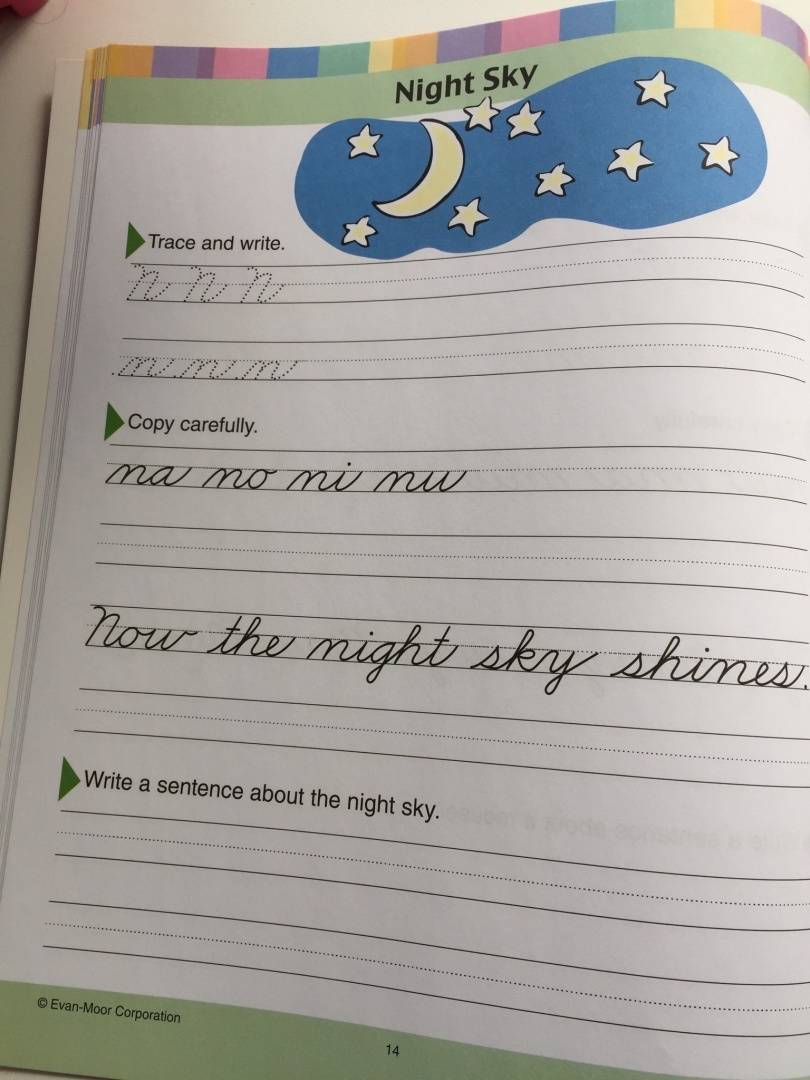 Night Sky
Trace and write.
N N N
n n n
Copy carefully.
na no ni nu
Now the night sky shines.
Write a sentence about the night sky.
© Evan-Moor Corporation
14